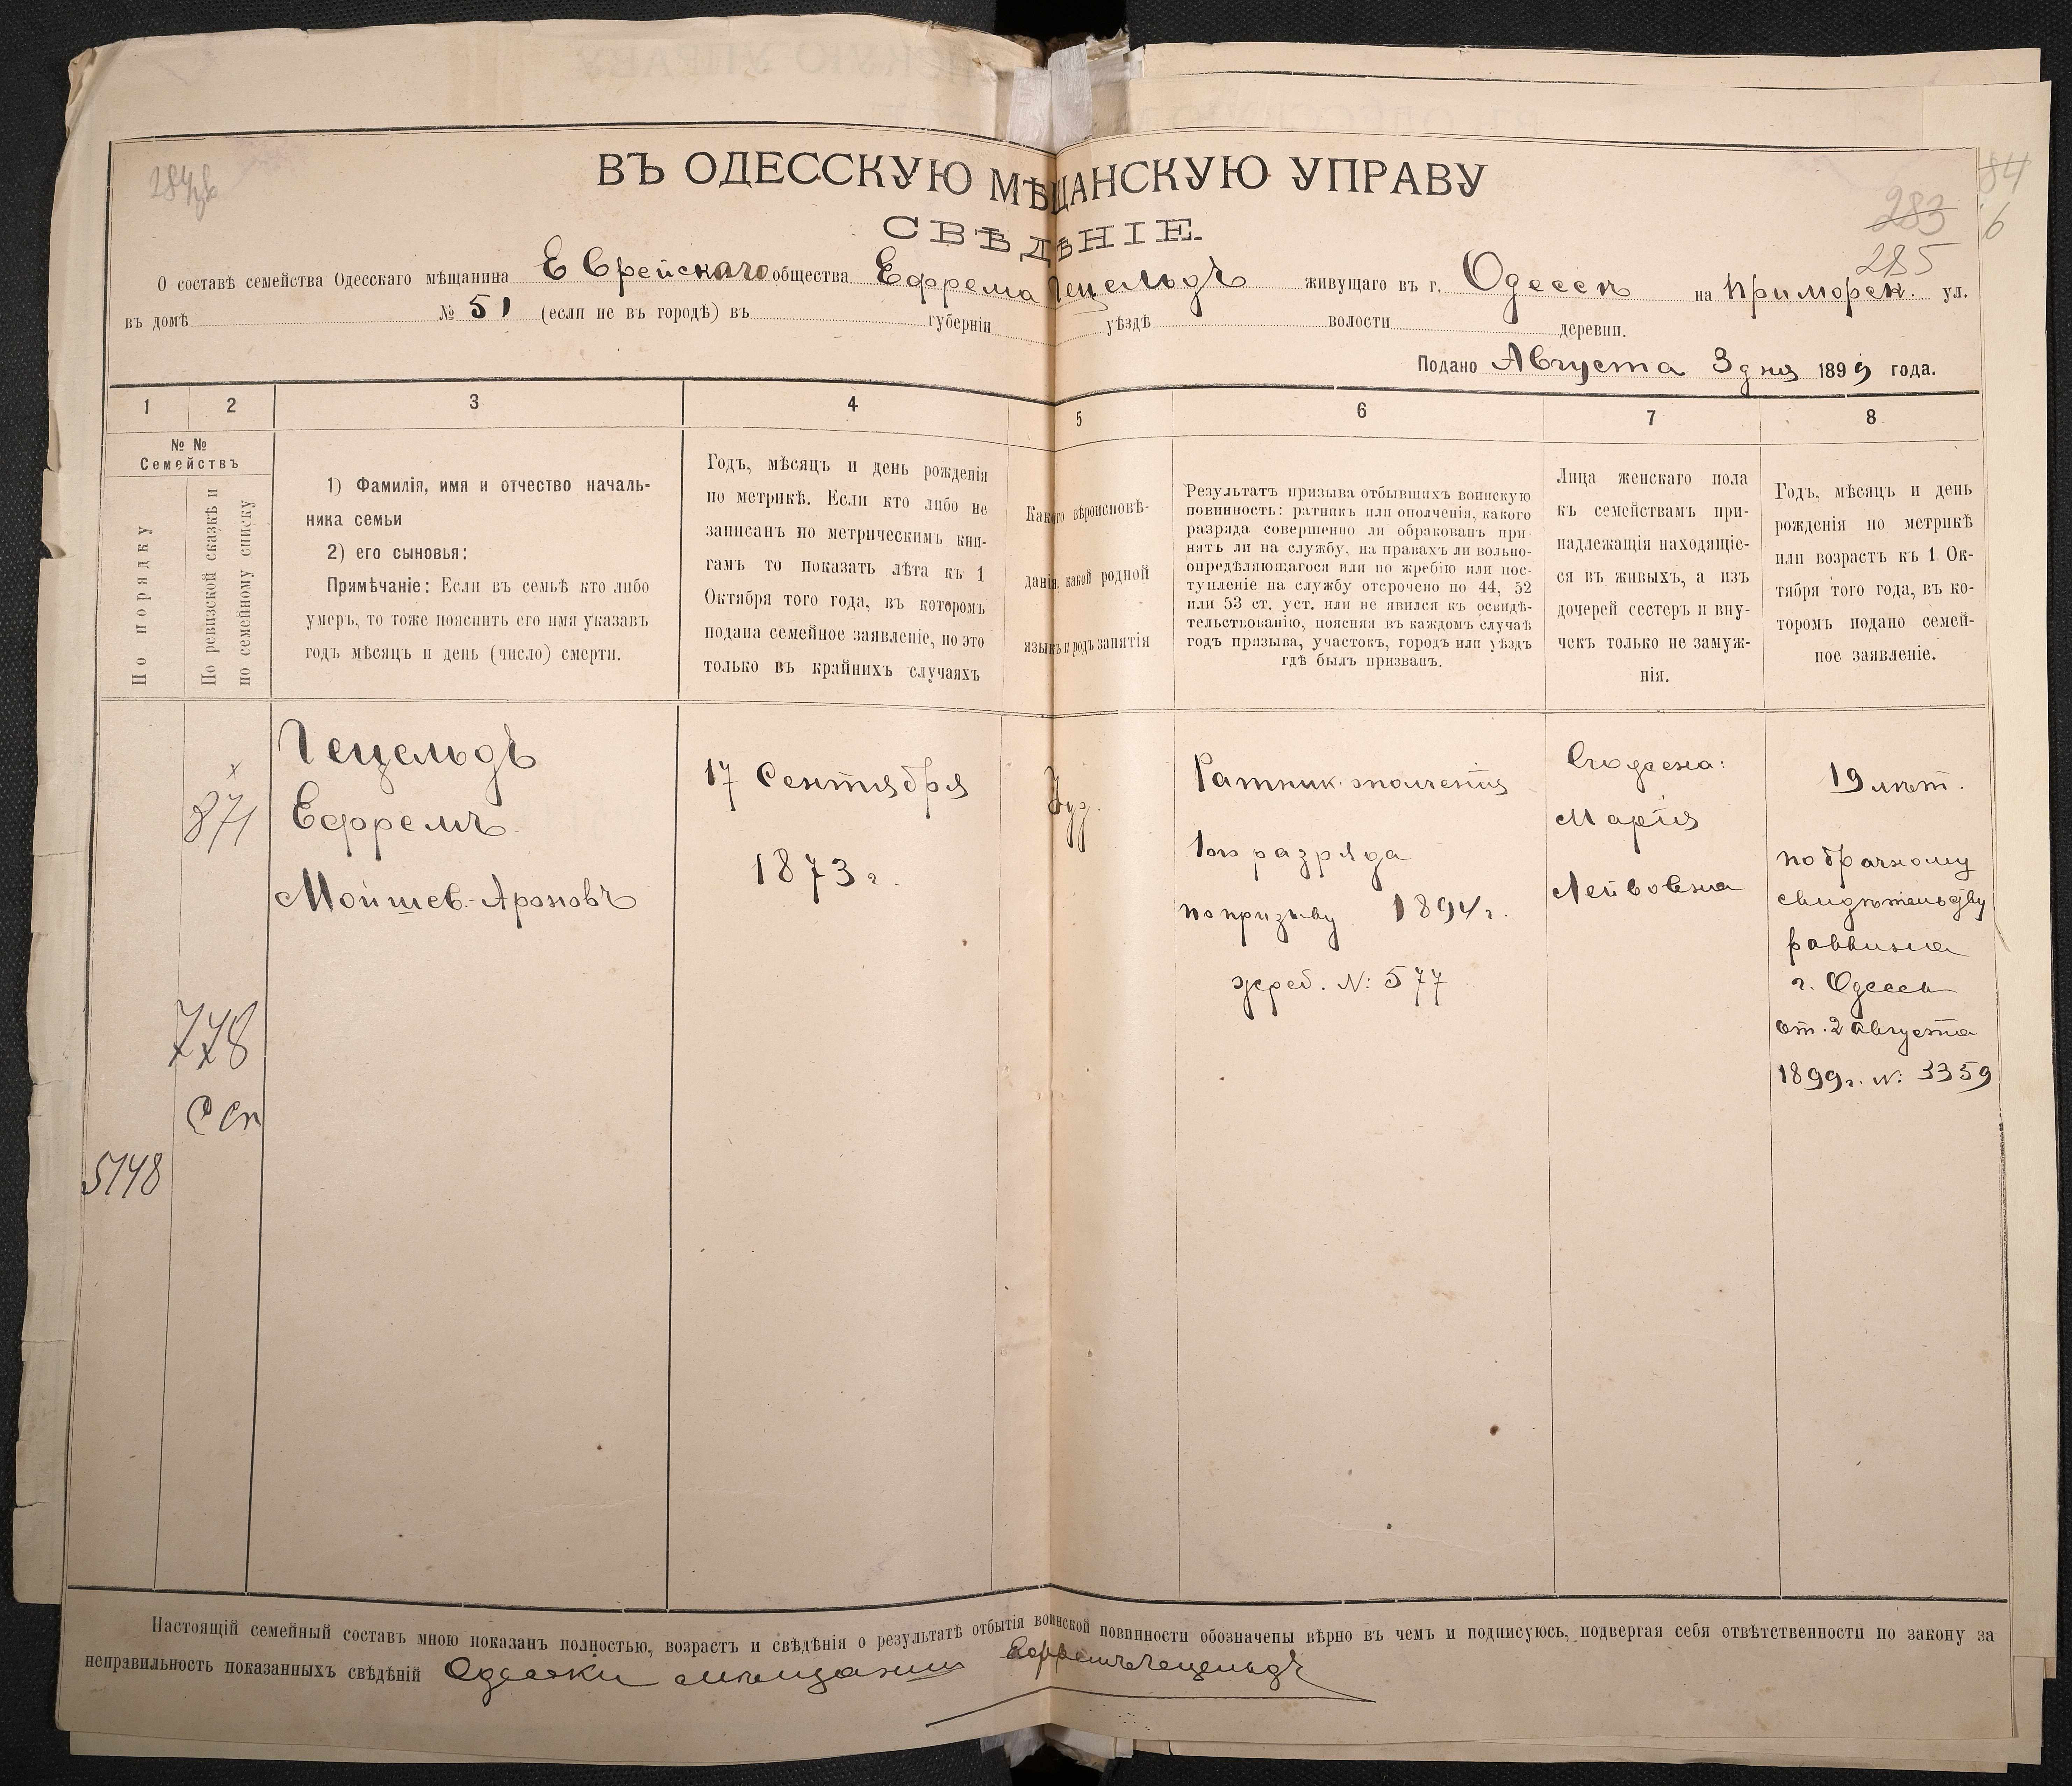 ВЪ ОДЕССКУЮ МѢЩАНСКУЮ УПРАВУ
СВѢДѢНІЕ
283
285
84
6
О составѣ семейства Одесскаго мѣщанина Еврейскаго общества Ефрема Гецельдъ живущаго въ г. Одессѣ на Приморск. ул.
въ домѣ № 51 (если не въ городѣ) въ губерніи уѣздѣ волости деревни.
Подано Августа 3 дня 1899 года.
1 2 3 4 5 6 7 8
№ №
Семействъ
По порядку
По ревизской сказкѣ и
по семейному списку
1) Фамилія, имя и отчество началь-
ника семьи
2) его сыновья:
Примѣчаніе: Если въ семьѣ кто либо
умеръ, то тоже пояснить его имя указавъ
годъ мѣсяцъ и день (число) смерти.
Годъ, мѣсяцъ и день рожденія
по метрикѣ. Если кто либо не
записанъ по метрическимъ кни-
гамъ то показать лѣта къ 1
Октября того года, въ которомъ
подана семейное заявленіе, но это
только въ крайнихъ случаяхъ
Какого вѣроисповѣ-
данія, какой родной
языкъ и родъ занятія
Результатъ призыва отбывшихъ воинскую
повинность: ратникъ или ополченія, какого
разряда совершенно ли обракованъ при-
нятъ ли на службу, на правахъ ли вольно-
опредѣляющагося или по жребію или пос-
тупленіе на службу отсрочено по 44, 52
или 53 ст. уст. или не явился къ освидѣ-
тельствованію, поясняя въ каждомъ случаѣ
годъ призыва, участокъ, городъ или уѣздъ
гдѣ былъ призванъ.
Лица женскаго пола
къ семействамъ при-
надлежащія находящіе-
ся въ живыхъ, а изъ
дочерей сестеръ и вну-
чекъ только не замуж-
нія.
Годъ, мѣсяцъ и день
рожденія по метрикѣ
или возрастъ къ 1 Ок-
тября того года, въ ко-
торомъ подано семей-
ное заявленіе.
х
871
778
5148
Гецельдъ
Ефремъ
Мойшев.-Ароновъ
17 Сентября
1873 г.
Іуд.
Ратник. ополченія
1ого разряда
по призыву 1894 г.
жреб. №: 577
Его жена:
Марія
Лейбовна
19 лѣт.
по брачному
свидѣтельству
раввина
г. Одессы
от. 2 Августа
1899 г. №: 3359
Настоящій семейный составъ мною показанъ полностью, возрастъ и свѣдѣнія о результатѣ отбытія воинской повинности обозначены вѣрно въ чемъ и подписуюсь, подвергая себя отвѣтственности по закону за
неправильность показанныхъ свѣдѣній Одесскій мѣщанин Ефремъ Гецельдъ